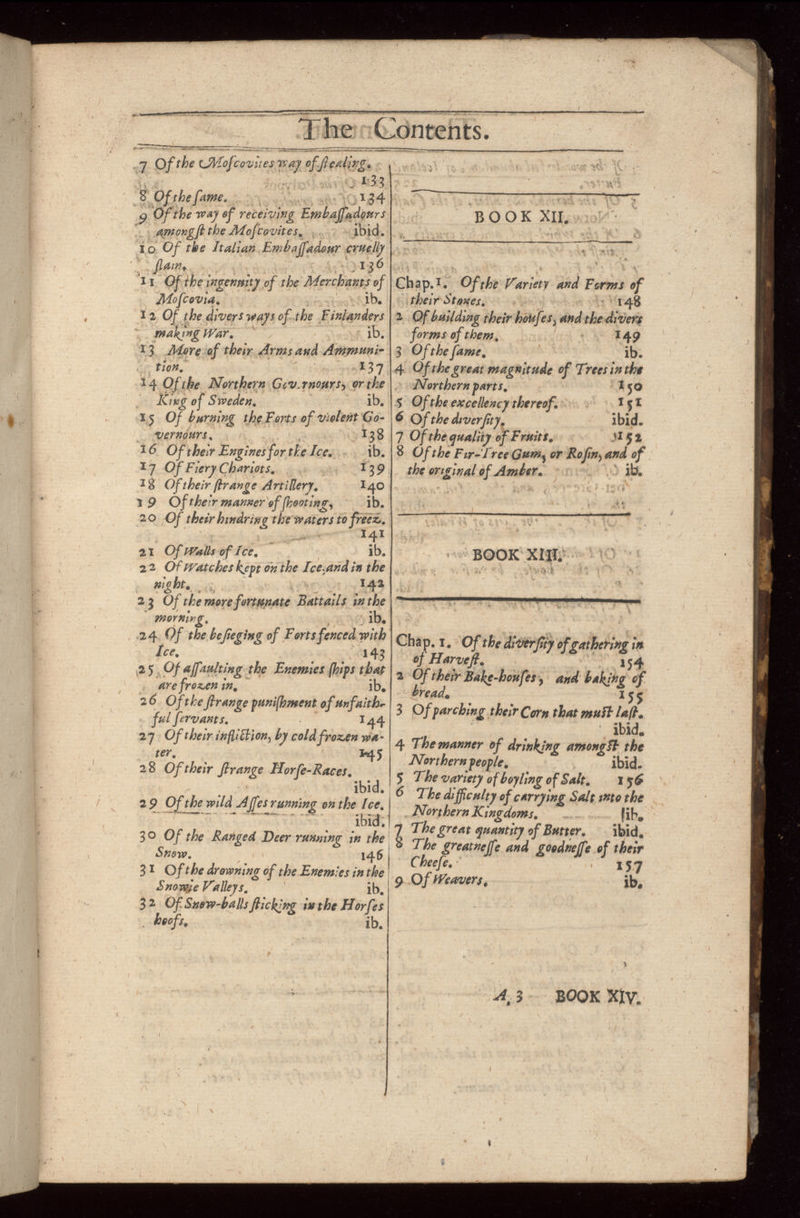 The Contents.
7 Of the Moſcovites way of ſtealing.
133
8 Of the ſame. 134
9 Of the way of receiving Embaſſadours
amongſt the Moſcovites. ibid.
10 Of the Italian Embaſſadour cruelly
ſlain. 136
11 Of the ingenuity of the Merchants of
Moſcovia. ib.
12 Of the divers ways of the Finlanders
making War. ib.
13 More of their Arms and Ammuni-
tion. 137
14 Of the Northern Gov.rnours, or the
King of Sweden. ib.
15 Of burning the Forts of violent Go-
vernours. 138
16 Of their Engines for the Ice. ib.
17 Of Fiery Chariots. 139
18 Of their ſtrange Artillery. 140
19 Of their manner of ſhooting, ib.
20 Of their hindring the waters to freez.
141
21 Of Walls of Ice. ib.
22 Of Watches kept on the Ice, and in the
night. 142
23 Of the more fortunate Battails in the
morning. ib.
24 Of the beſieging of Forts fenced with
Ice. 143
25 Of aſſaulting the Enemies ſhips that
are frozen in. ib.
26 Of the ſtrange puniſhment of unfaith-
ful ſervants. 144
27 Of their infliction, by cold frozen wa-
ter. 145
28 Of their ſtrange Horſe-Races.
ibid.
29 Of the wild Aſſes running on the Ice.
ibid.
30 Of the Ranged Deer running in the
Snow. 146
31 Of the drowning of the Enemies in the
Snowie Valleys. ib.
32 Of Snow-balls ſticking in the Horſes
hoofs. ib.
BOOK XII.
Chap. 1. Of the Variety and Forms of
their Stones. 148
2 Of building their houſes, and the divers
forms of them. 149
3 Of the ſame. ib.
4 Of the great magnitude of Trees in the
Northern parts. 150
5 Of the excellency thereof. 151
6 Of the diverſity. ibid.
7 Of the quality of Fruits. 152
8 Of the Fir-Tree Gum, or Roſin, and of
the original of Amber. ib.
BOOK XIII.
Chap. 1. Of the diverſity of gathering in
of Harveſt. 154
2 Of their Bake-houſes, and baking of
bread. 155
3 Of parching their Corn that muſt laſt.
ibid.
4 The manner of drinking amongſt the
Northern people. ibid.
5 The variety of boyling of Salt. 156
6 The difficulty of carrying Salt into the
Northern Kingdoms. ib.
7 The great quantity of Butter. ibid.
8 The greatneſſe and goodneſſe of their
Cheeſe. 157
9 Of Weavers. ib.
A 3 BOOK XIV.